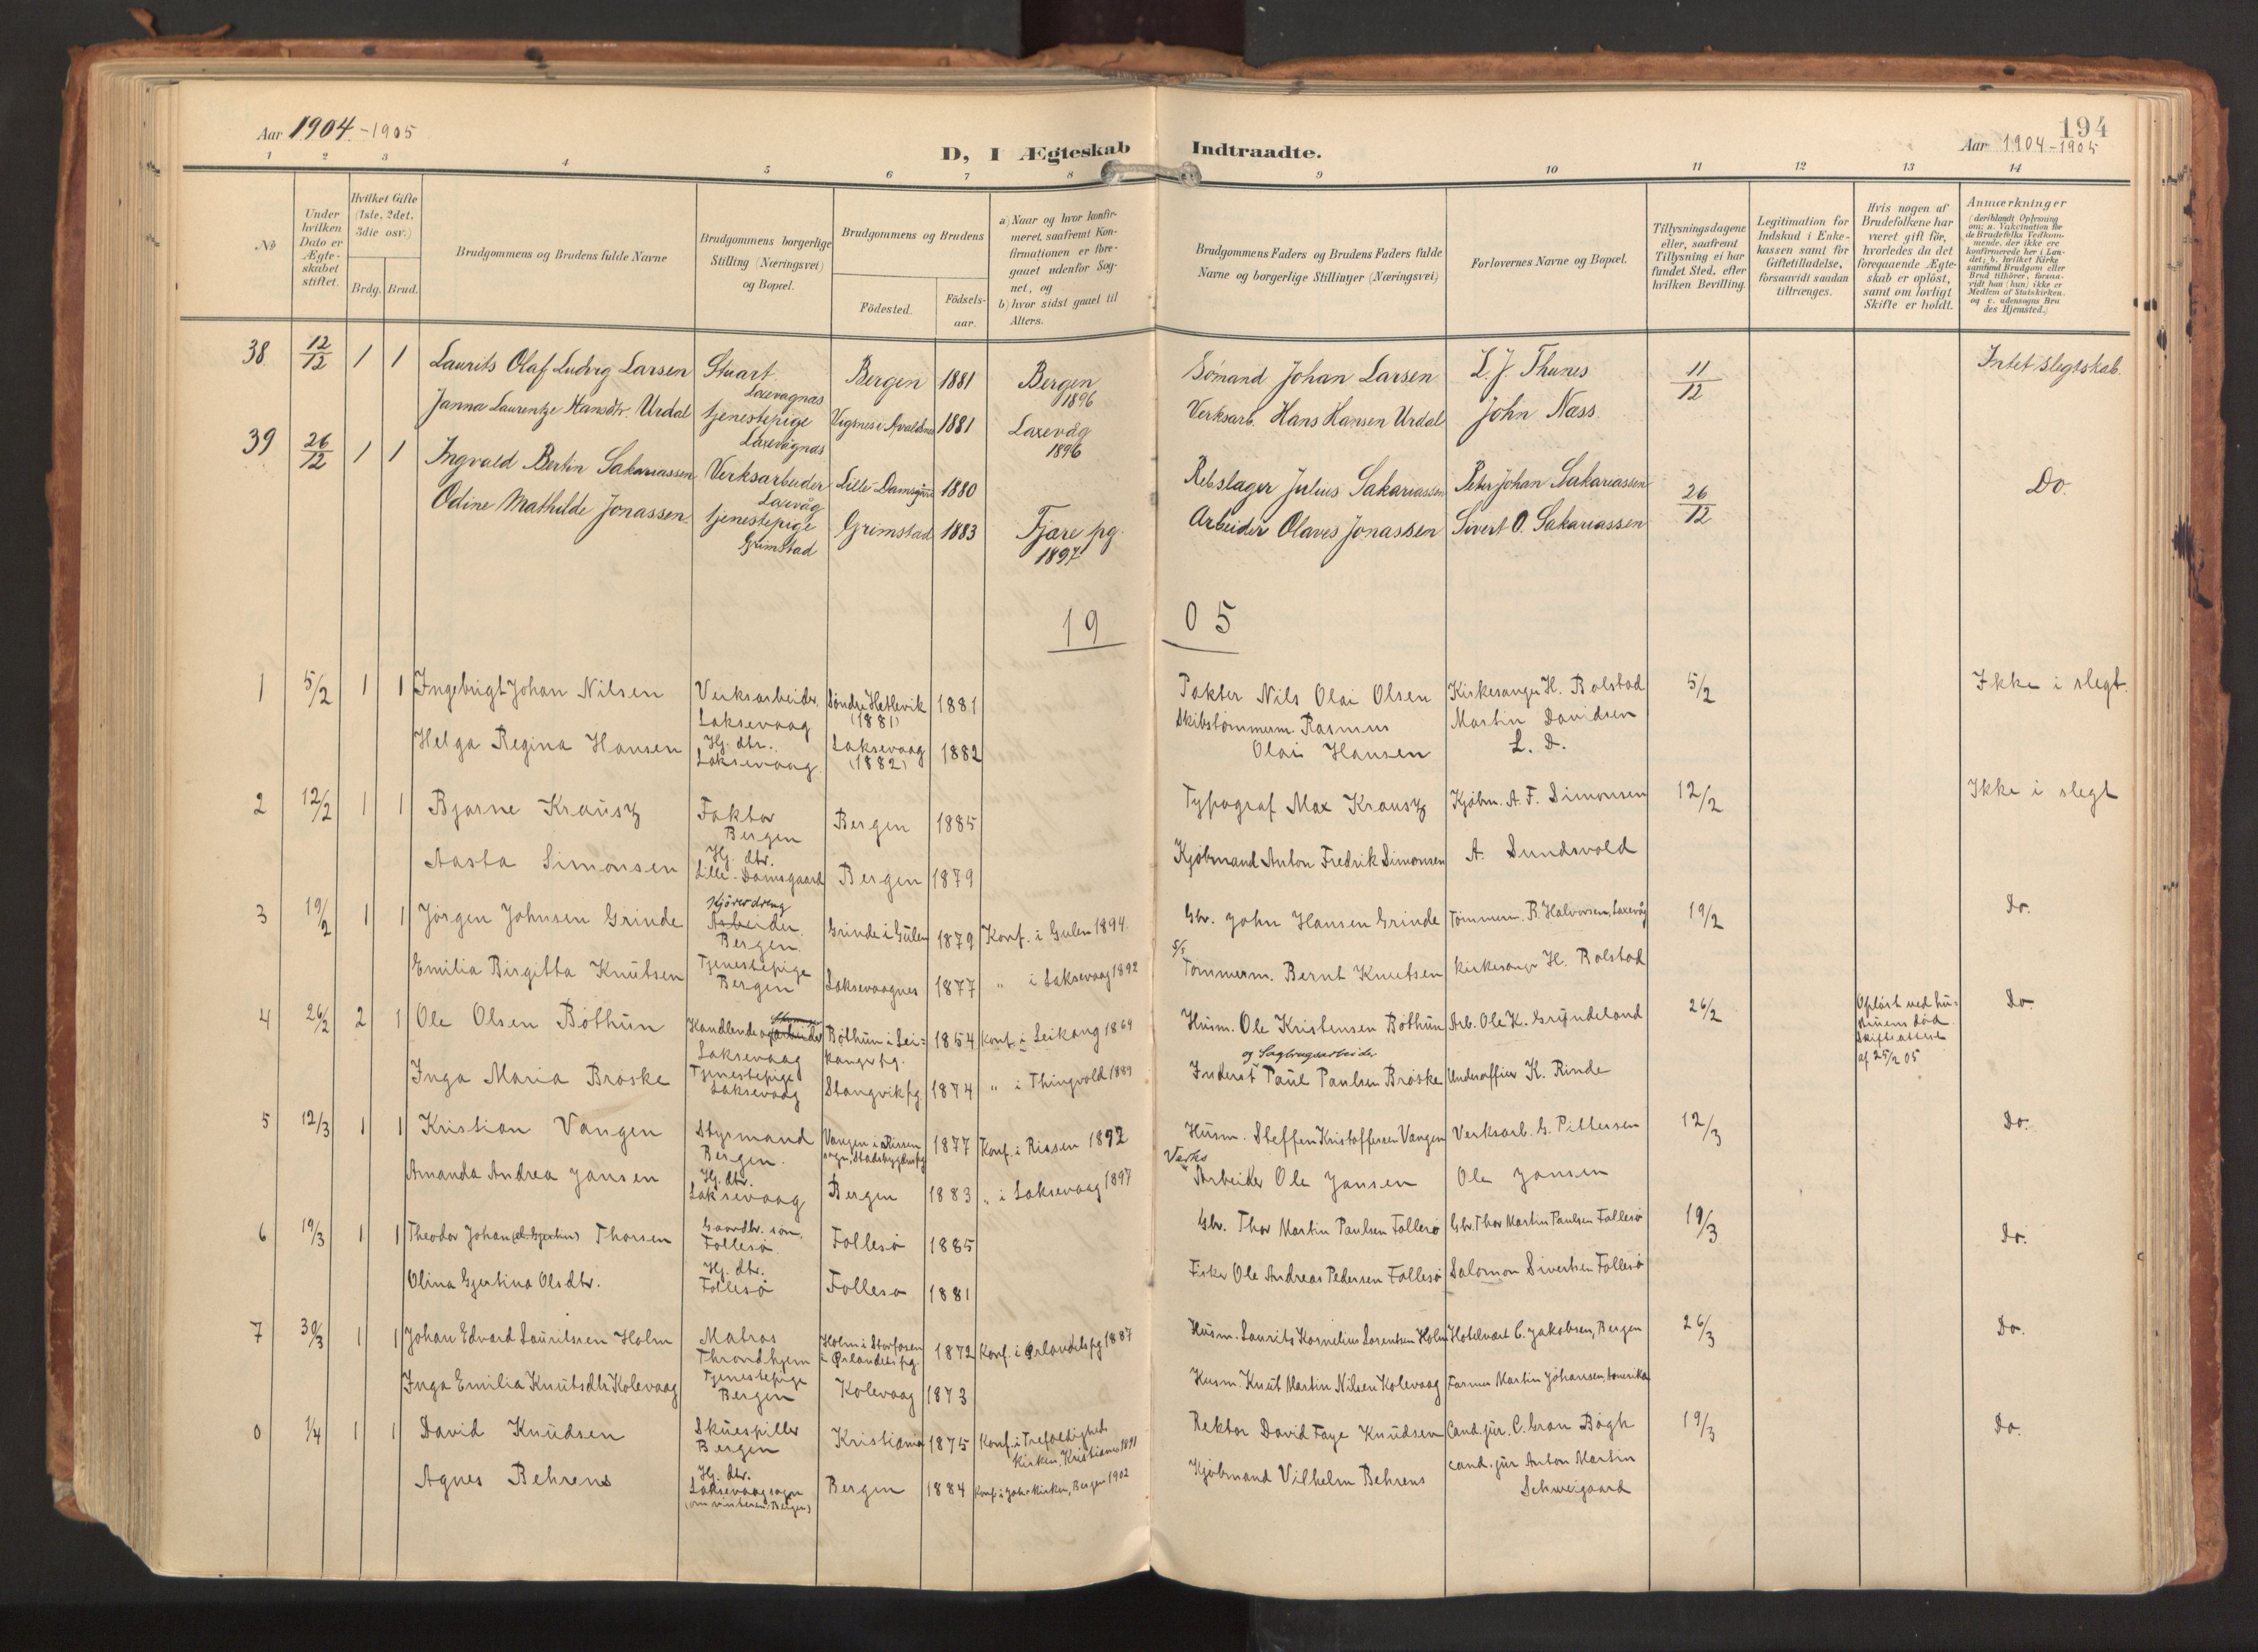 Aar 1904.-1905
D, I Ægteskab Indtraadte.
194
Aar 1904-1905
1 2 3 4 5 6 7 8 9 10 11 12 13 14
No
Under hvilken Dato er Ægteskabet stiftet.
Hvilket Gifte (1ste, 2det, 3die osv.)
Brdg. Brud.
Brudgommens og Brudens fulde Navne
Brudgommens borgerlige Stilling (Næringsvei) og Bopæl.
Brudgommens og Brudens
Födested. Födselsaar.
a) Naar og hvor konfirmeret, saafremt Konfirmationen er foregaaet udenfor Sognet, og
b) hvor sidst gaaet til Alters.
Brudgommens Faders og Brudens Faders fulde Navne og borgerlige Stillinger (Næringsvei)
Forlovernes Navne og Bopæl.
Tillysningsdagene eller, saafremt Tillysning ei har fundet Sted, efter hvilken Bevilling.
Legitimation for Indskud i Enkekassen samt for Giftetilladelse, forsaavidt saadan tiltrænges.
Hvis nogen af Brudefolkene har været gift för, hvorledes da det foregaaende Ægteskab er oplöst, samt om lovligt Skifte er holdt.
Anmærkninger
(deriblandt Oplysning om: a. Vaksination for de Brudefolks Vedkommende, der ikke ere konfirmerede her i Landet; b. hvilket Kirkesamfund Brudgom eller Brud tilhörer, forsaavidt han (hun) ikke er Medlem af Statskirken, og c. udensogns Brudes Hjemsted.)
38 12/12 1 1 Laurits Olaf Ludvig Larsen Stuart Laxevagnas Bergen 1881 Bergen 1896 Sömand Johan Larsen L. J. Thunes 11/12 Intet slegtskab.
Janna Laurentze Hansdtr. Urdal tjenestepige Laxevågnas Vigsnes i Avaldsnes 1881 Laxevåg 1896 Verksarb. Hans Hansen Urdal John Næss.
39 26/12 1 1 Ingvald Bertin Sakariassen Verksarbeider Laxevåg Lille-Damsgård 1880 Rebslager Julius Sakariassen Peter Johan Sakariassen 26/12 Do.
Odine Mathilde Jonassen tjenestepige Grimstad Grimstad 1883 Fjære pg. 1897 Arbeider Olaves Jonassen Sivert O. Sakariassen
19 05
1 5/2 1 1 Ingebrigt Johan Nilsen Verksarbeider. Laksevaag Söndre Hetlevik (1881) 1881 Pakter Nils Olai Olsen Kirkesanger H. Rolstad 5/2 Ikke i slegt.
Helga Regina Hansen Hj. dtr. Laksevaag. Laksevaag (1882) 1882 Skibstömmerm. Rasmus Olai Hansen Martin Davidsen L. D.
2 12/2 1 1 Bjarne Krausz Faktor Bergen Bergen 1885 Typograf Max Krausz Kjöbm. A. F. Simonsen 12/2 Ikke i slegt
Aasta Simonsen Hj. dtr. Lille-Damsgaard Bergen 1879 Kjöbmand Anton Fredrik Simonsen A. Sundsvold
3 19/2 1 1 Jörgen Johnsen Grinde Kjöredreng Arbeider. Bergen. Grinde i Gulen 1879 Konf. i Gulen 1894. Gbr. John Hansen Grinde Tömmerm. B. Halvorsen, Laxevåg 19/2 Do.
Emilia Birgitta Knutsen Tjenestepige Bergen Laksevaagnes 1877 " i Laksevaag 1892 S/S Tömmerm. Bernt Knutsen Kirkesanger H. Rolstad
4 26/2 2 1 Ole Olsen Böthun Handlende og arbeider Laksevaag Böthun i Leikanger pg. 1854 Konf. i Leikang 1869 Husm. Ole Kristensen Böthun Arb. Ole K. Gryndeland 26/2 Oplöst ved hustruens död Skifteattest af 25/2 05 Do
Inga Maria Bröske Tjenestepige Laksevaag Stangvik pg. 1874 " i Thingvold 1889 Inderst og Sagbrugsarbeider Paul Paulsen Bröske Underoffier K. Rinde
5 12/3 1 1 Kristian Vangen Styrmand Bergen. Vangen i Rissen sogn, Stadsbygdens pg 1877 Konf. i Rissen 1892 Husm. Steffen Kristoffersen Vangen Verksarb. G. Pettersen 12/3 Do.
Amanda Andrea Jansen Hj. dtr. Laksevaag Bergen 1883 " i Laksevaag 1897 Verksarbeider Ole Jansen Ole Jansen
6 19/3 1 1 Theodor Johan Thorsen Gaardbr. sön, Follesö. Follesö 1885 Gbr. Thor Martin Paulsen Follesö Gbr. Thor Martin Paulsen Follesö 19/3 Do.
Olina Gjertina Olsdtr. Hj. dtr. Follesö Follesö 1881 Fisker Ole Andreas Pedersen Follesö Salomon Sivertsen Follesö
7 30/3 1 1 Johan Edvard Lauritssen Holm Matros Throndhjem Holm i Storfosen i Ørlandets pg. 1872 Konf. i Ørlandets pg 1887 Husm. Laurits Kornelius Lorentsen Holm Hotelvært C. Jakobsen, Bergen 26/3 Do.
Inga Emilia Knutsdtr Kolevaag Tjenestepige Bergen Kolevaag 1873 Husm. Knut Martin Nilsen Kolevaag Farmer Martin Johansen, Amerika
0 1/4 1 1 David Knudsen Skuespiller Bergen Kristiania 1875 Konf. i Trefoldigheds kirken, Kristiania 1891 Rektor David Faye Knudsen Cand. jur. C. Gran Bögh 19/3 Do.
Agnes Behrens Hj. dtr. Laksevaag sogn (om vinteren i Bergen) Bergen 1884 Konf. i Joh. kirken, Bergen 1902 Kjöbmand Vilhelm Behrens cand. jur Anton Martin Schweigaard